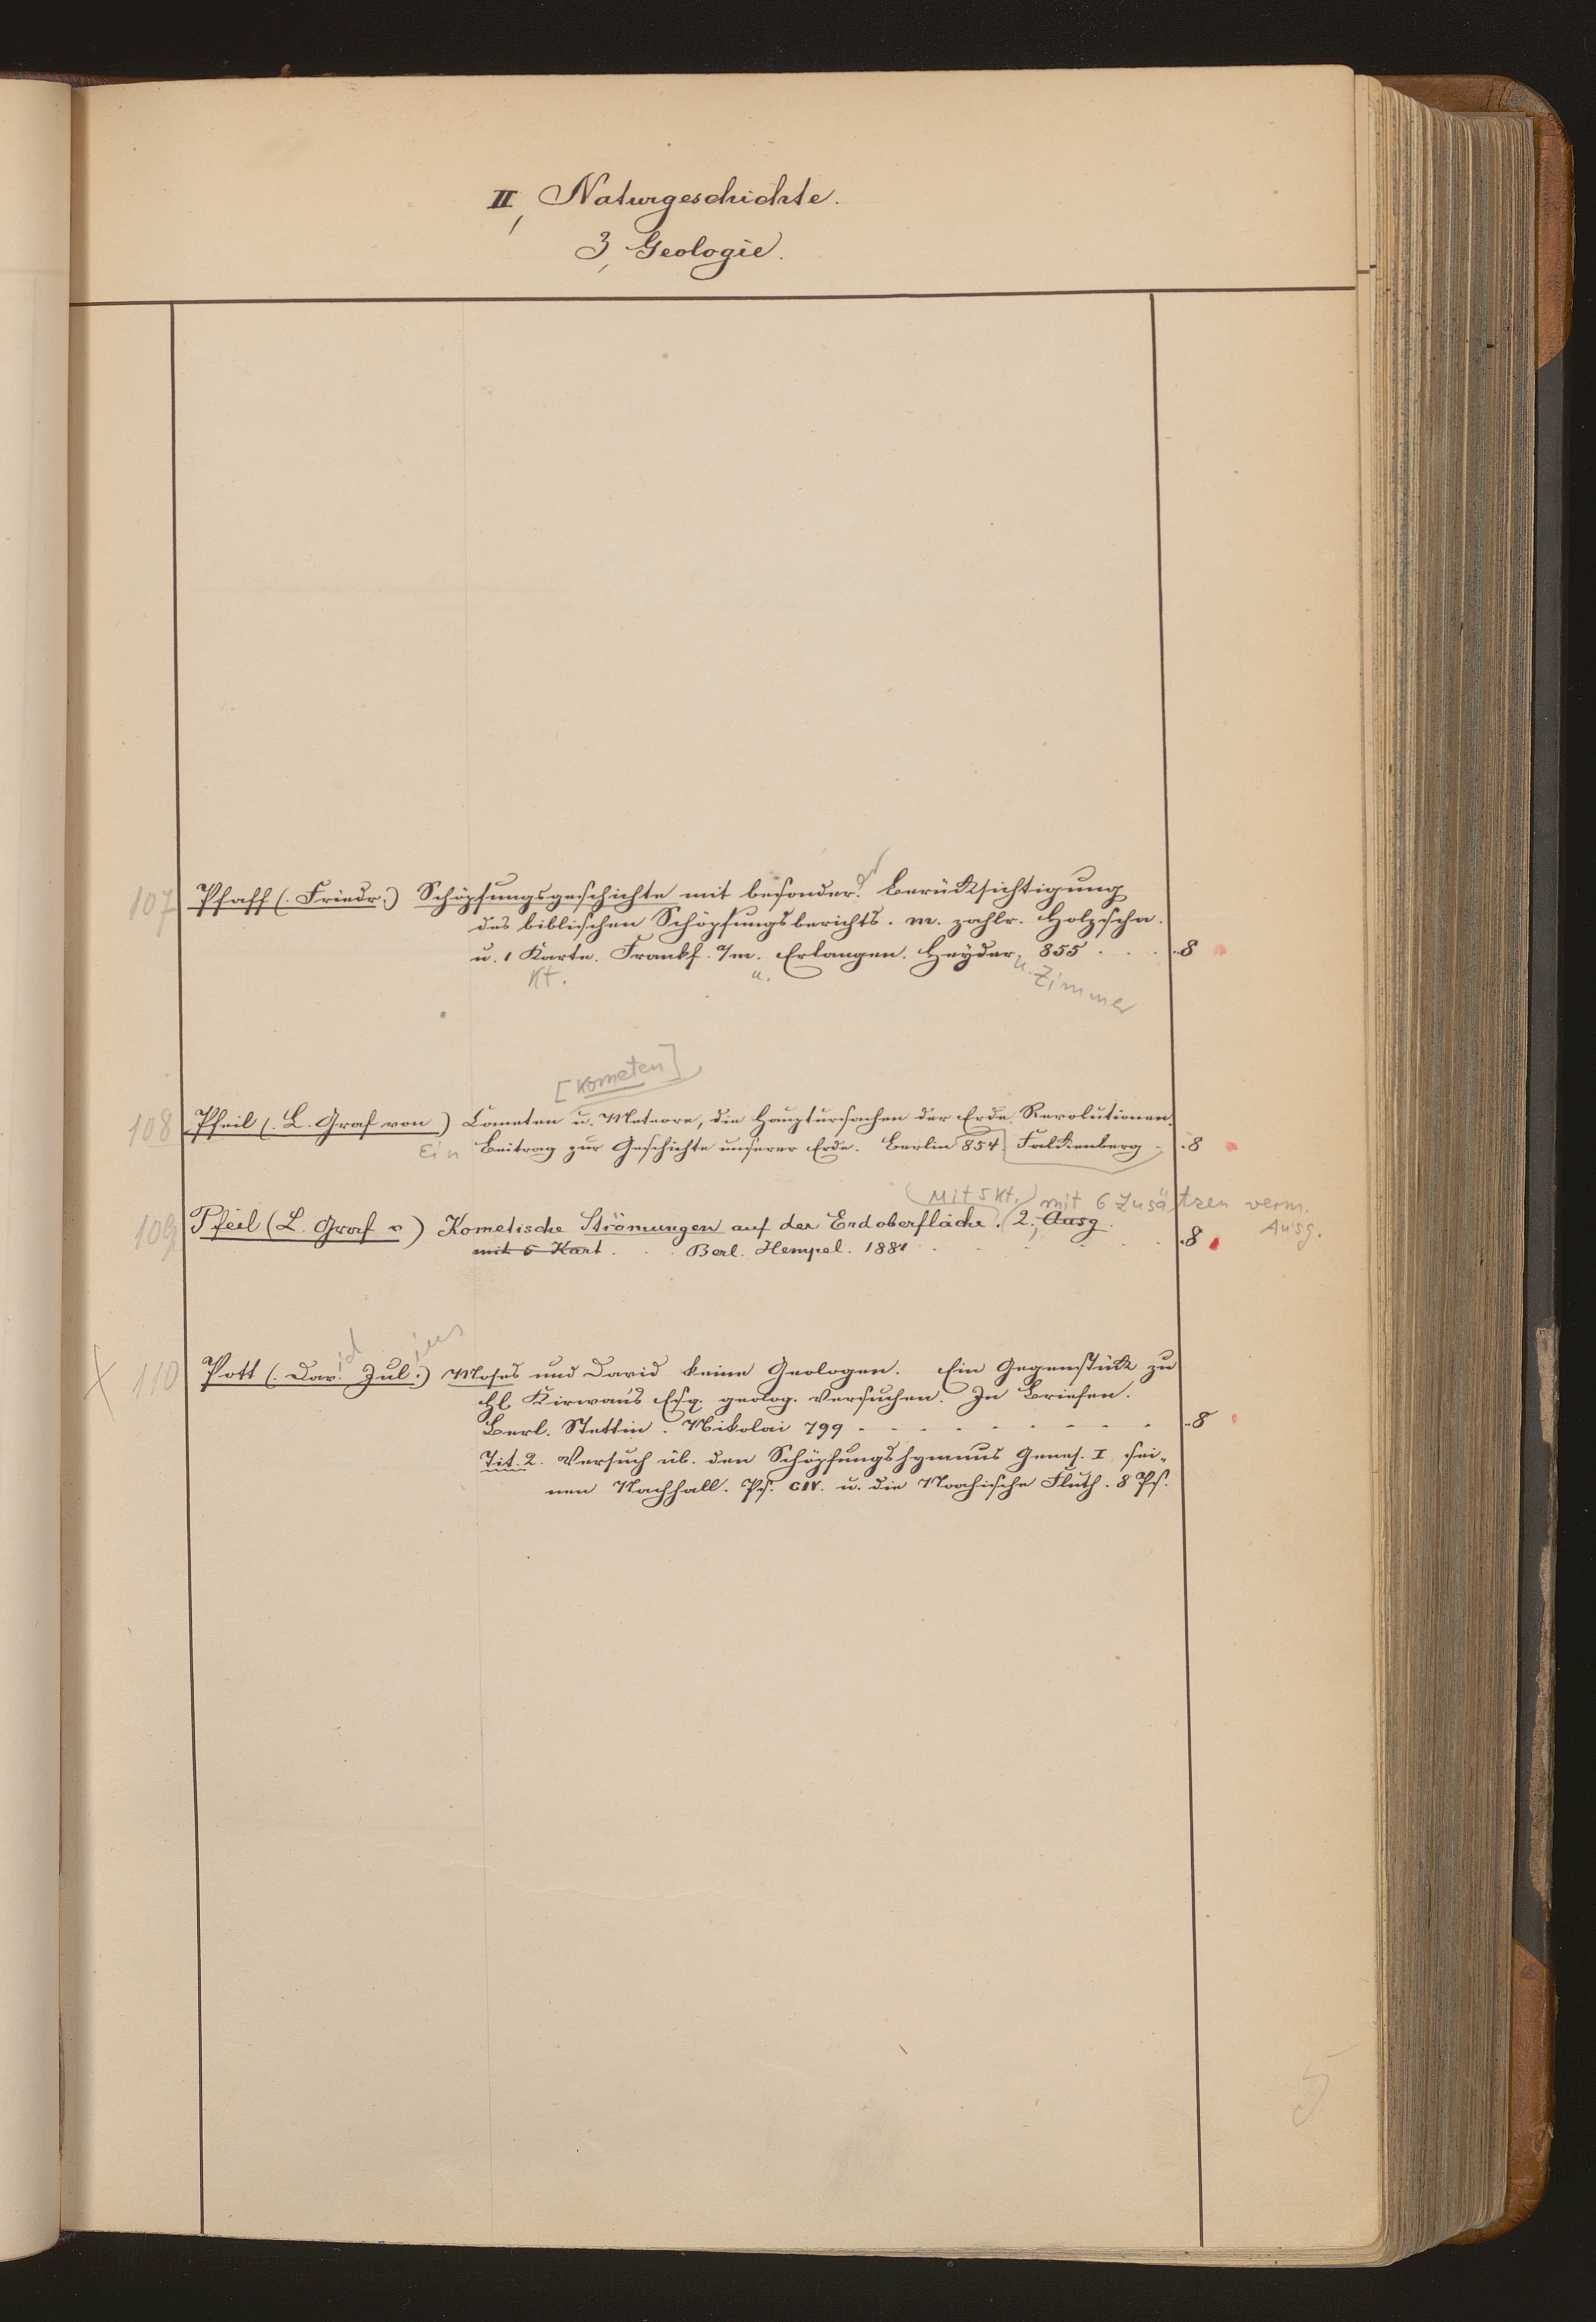 II, Naturgeschichte.
3, Geologie.
107 Pfaff (. Friedr.) Schöpfungsgeschichte mit besonder. Berücksichtigung
des biblischen Schöpfungsberichts. m. zahlr. Holzschn.
u. 1 Karte. Frankf. a/m. Erlangen. Heyder, 855 . . . .8
Kt. u. u. Zimmer
[Kometen]
108 Pfeil (. L. Graf von) Cometen u. Meteore, die Hauptursachen der Erde Revolutionen.
Ein Beitrag zur Geschichte unserer Erde. Berlin 854. Falkenberg . .8
(Mit 5 Kt.) mit 6 Zusätzen verm.
Ausg.
109 Pfeil (L. Graf v) Kometische Strömungen auf der Erdoberfläche. (2, Ausg.
mit 5 Kart. . . Berl. Hempel. 1881 . . . . . .8
id ius
X 110 Pott (. Dav. Jul.) Moses und David keine Geologen. Ein Gegenstück zu
H. Kirwan's Esq. geolog. Versuchen. In Briefen.
Berl. Stettin. Nikolai 799 . . . . . . . . . .8
Tit. 2. Versuch üb. den Schöpfungshymnus Genes. I, sei-
nen Nachhall. Ps. CIV. u. die Noahische Fluth. 8 Ps.
5